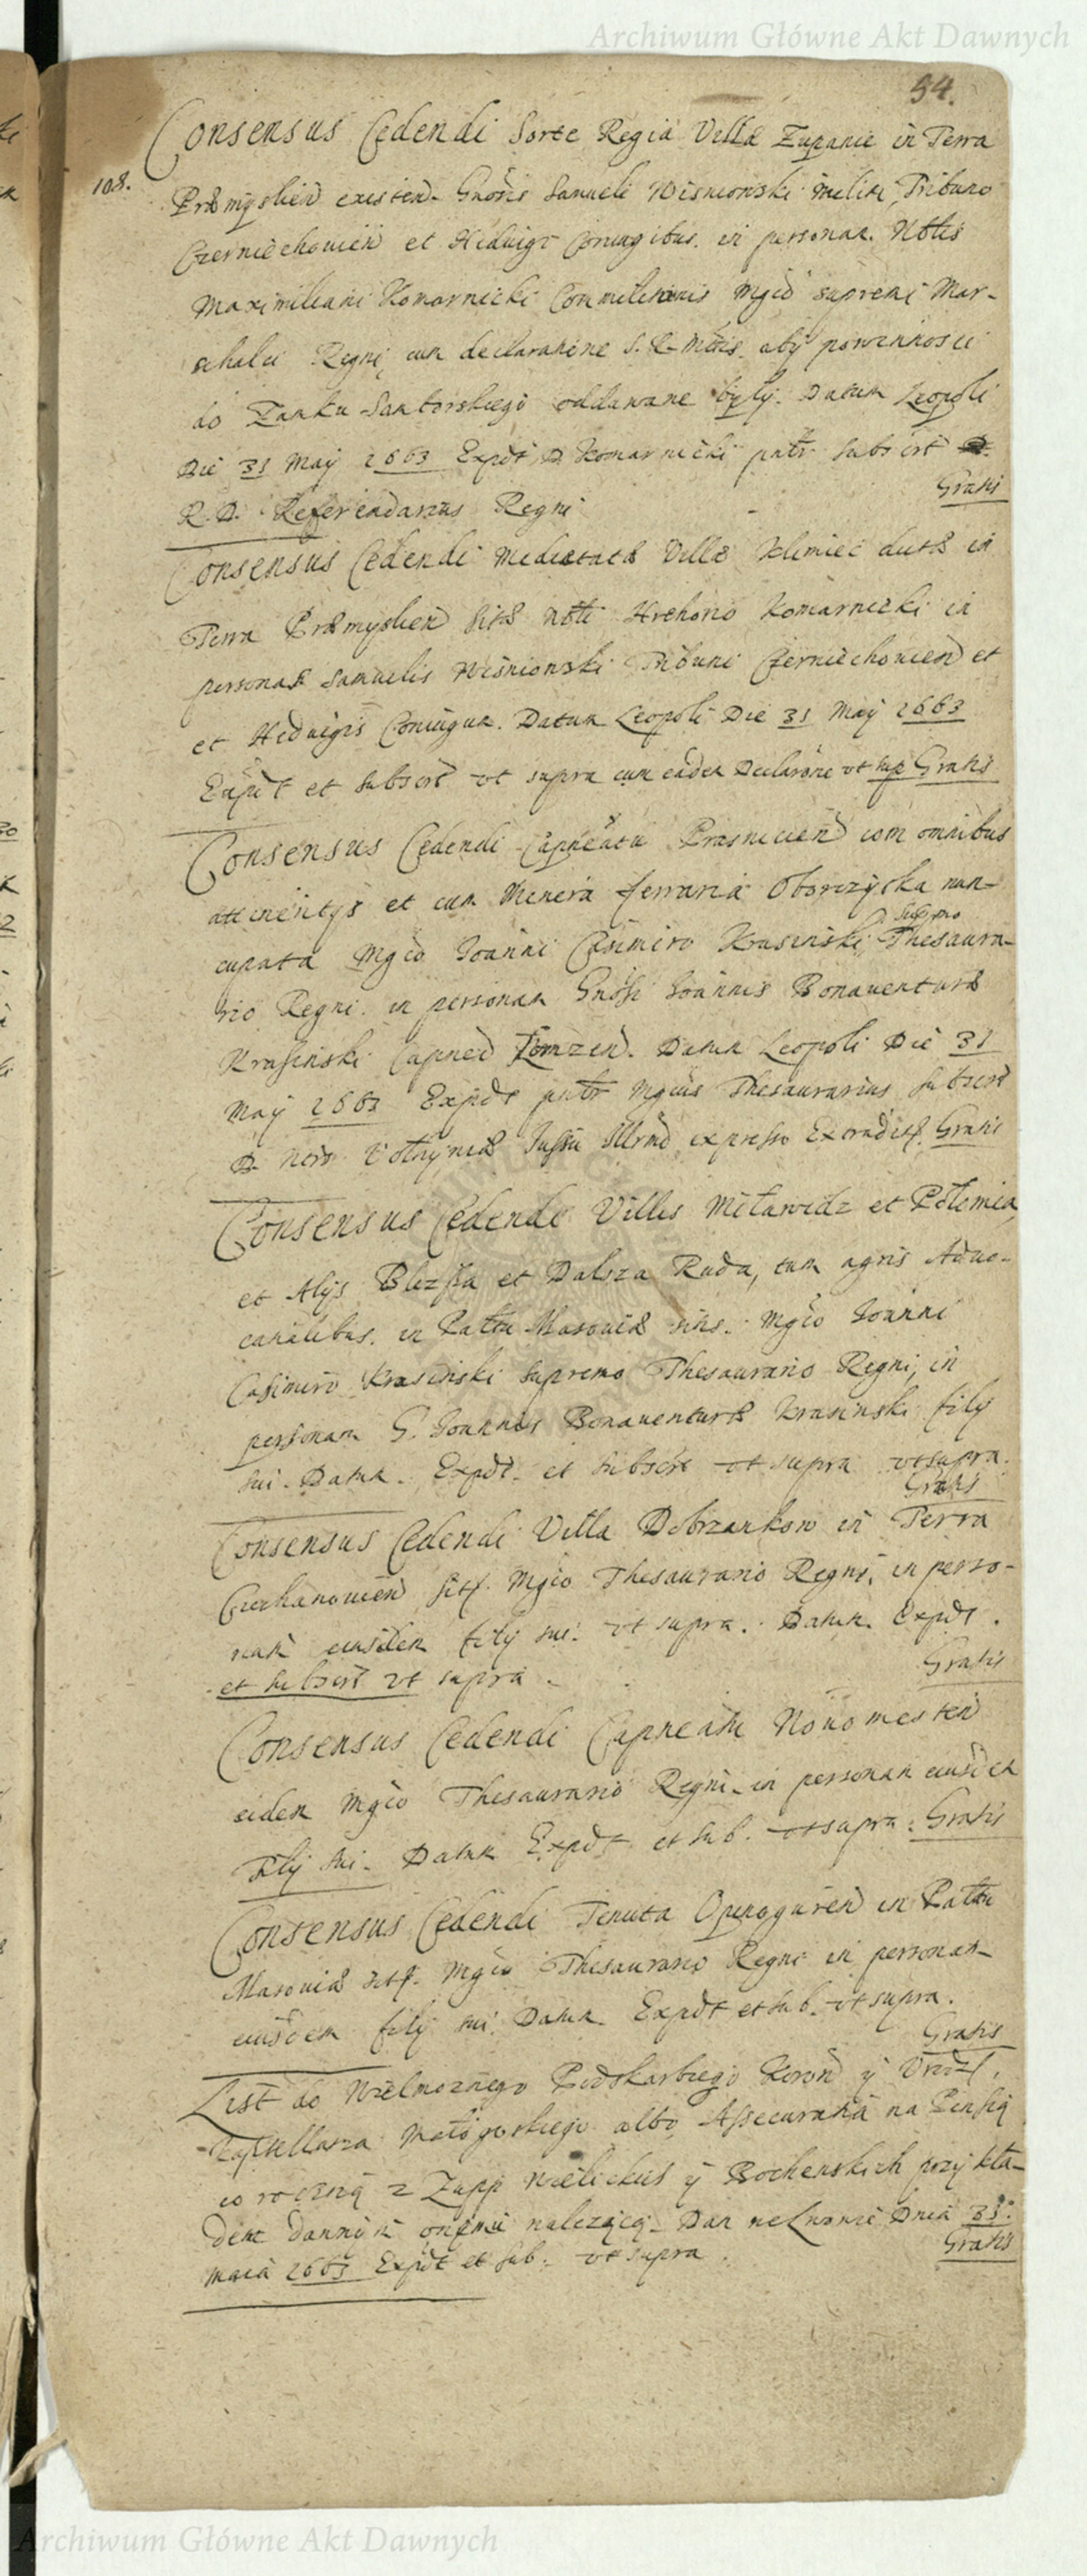 Archiwum Główne Akt Dawnych
54.
Consensus Cedendi Sorte Regia Villæ Zupanie in Terra
108.
Præmyslien existen. Gnosis Samueli Wisniowski militi, Tribuno
Czerniechovien et Hedvigi Coniugibus in personam Nobilis
Maximiliani Komarnicki Conmilitonis Mgici supremi Mar-
schalci Regni, cum declaratione S. R. Mttis aby powinnosci
do Zamku Samborskiego oddawane były. Datum Leopoli
Die 31 Maÿ 1663 Expdt D Komarnicki pntr subscrt
Gratis
R. D. Referendarius Regni
Consensus Cedendi Medietatæ Villæ Klimiec dictæ in
Terra Præmyslien sitæ Nbli Hrehorio Komarnicki in
personam Samuelis Wisniowski Tribuni Czerniechovien et
et Hedvigis Coniugum. Datum Leopoli Die 31 Maÿ 1663
Expdt et subscrt ut supra cum eadem Declarone ut sup Gratis
Consensus Cedendi Capneatu Prasnicien com omnibus
attinentÿs et cum Minera ferraria Oborczyska nun-
supmo
cupata Mgco Joanni Casimiro Krasinski Thesaura-
rio Regni in personam Gnosi Joannis Bonaventuræ
Krasinski Capnei Lomzen. Datum Leopoli Die 31
Maÿ 1663 Expdt pntr Mgcus Thesaurarius subscrt
D. Nots Volhyniæ Jussu Illrmi expresso Extraditf. Gratis
Consensus Cedendi Villis Mławidz et Polemia,
et Alÿs Blezsta et Dalsza Ruda, tum agris Advo-
catialibus in Pallatu Masoviæ sitis. Mgco Joanni
Casimiro Krasinski supremo Thesaurario Regni, in
personam G. Joannis Bonaventuræ Krasinski filÿ
sui. Datum. Expdt. et subscrt ut supra ut supra.
Gratis
Consensus Cedendi Villa Dobrzankow in Terra
Ciechanovien sitf. Mgco Thesaurario Regni, in perso-
nam eiusdem filÿ sui ut supra. Datum. Expdt.
Gratis
et subscrt ut supra.
Consensus Cedendi Capneatu Novomesten
eidem Mgco Thesaurario Regni in personam eiusdem
filÿ sui. Datum Expdt et sub. ut supra. Gratis
Consensus Cedendi Tenuta Opinoguren in Pallatu
Masoviæ sitf. Mgco Thesaurario Regni in personam
eiusdem filÿ sui Datum. Expdt et sub. ut supra.
Gratis
List do Wielmoznego Podskarbiego Koron ÿ
Kasztellana Małogoskiego albo Assecuratia na Pensią
co roczną z Zupp Wielickich ÿ Bochenskich przykła-
dem dawnÿm onemu nalezącą. Dan we Lwowie Dnia 31.
Gratis
Maia 1663 Expdt et sub. ut supra.
Archiwum Główne Akt Dawnych